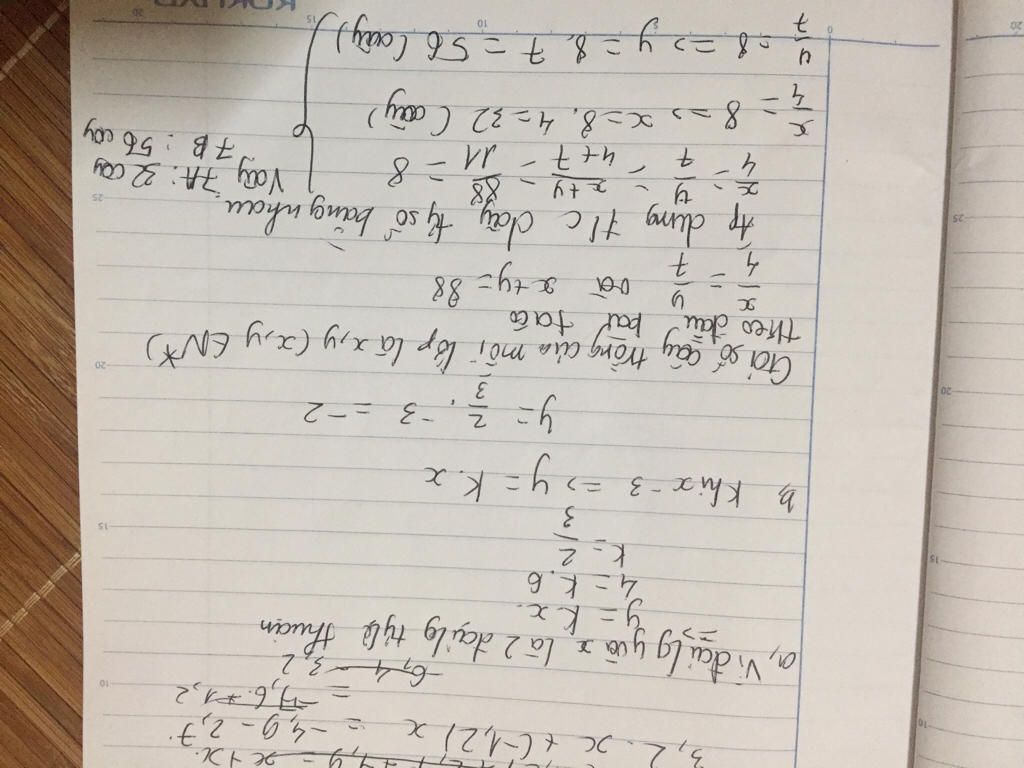 3,2 . x + (-1,2) x = -4,9 - 2,7
= -7,6 + 1,2
-6,4 3,2
a, Vì đại lg y và x là 2 đại lg tỷ lệ thuận
=> y = k x.
4 = k. 6
k = 2/3
b, Khi x -3 => y = k. x
y = 2/3 . -3 = -2
Gọi số cây trồng của mỗi lớp là x, y (x, y ∈ N*)
Theo đầu bài ta có
x/4 = y/7 và x+y = 88
Áp dụng t/c dãy tỷ số bằng nhau.
x/4 = y/7 = x+y/4+7 = 88/11 = 8
x/4 = 8 => x = 8. 4 = 32 (cây)
y/7 = 8 => y = 8. 7 = 56 (cây)
Vậy 7A: 32 cây
7B: 56 cây